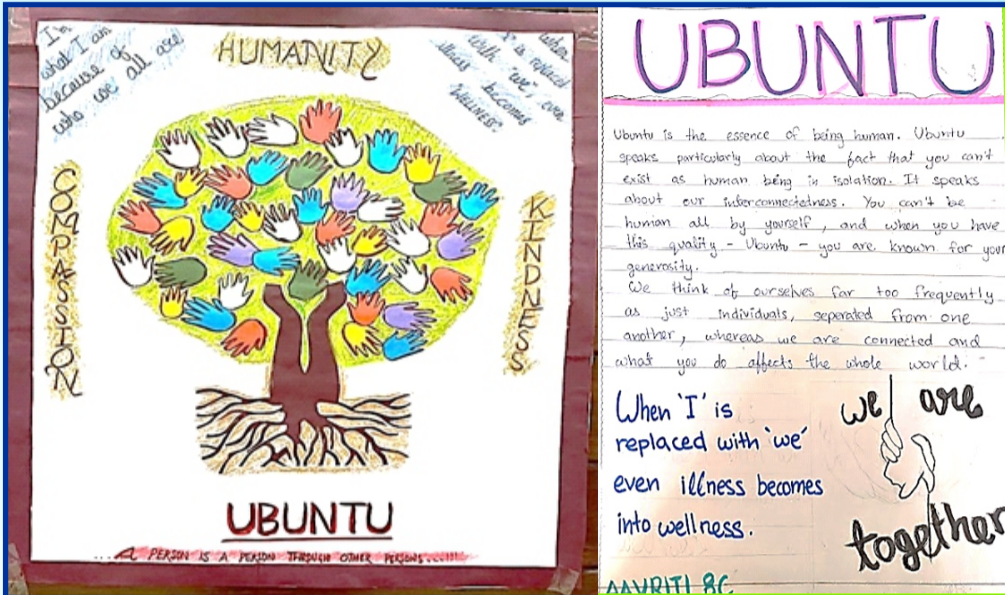 I'm
what I am
because of
who we all are!
HUMANITY
When
'I' is replaced
with "we", even
illness becomes
WELLNESS.
COMPASSION
KINDNESS
UBUNTU
....A PERSON IS A PERSON THROUGH OTHER PERSONS......
UBUNTU
Ubuntu is the essence of being human. Ubuntu
speaks particularly about the fact that you can't
exist as human being in isolation. It speaks
about our interconnectedness. You can't be
human all by yourself, and when you have
this quality - Ubuntu - you are known for your
generosity.
We think of ourselves far too frequently
as just individuals, seperated from one
another, whereas we are connected and
what you do affects the whole world.
When 'I' is
replaced with 'we'
even illness becomes
into wellness.
we are
together
AAVRITI 8C